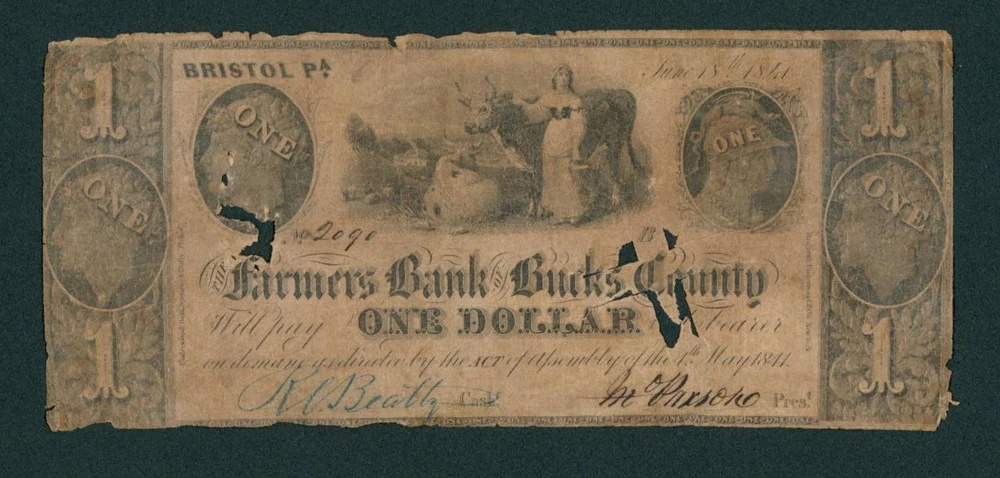 1
BRISTOL PA.
June 18th 1841
1
ONE
ONE
ONE
ONE
No 2090
B
THE Farmers Bank OF Bucks County
Will pay ONE DOLLAR bearer
on demand as directed by the ACT of Assembly of the 4th May 1841.
R C Beatty Cast. Prest.
1
1